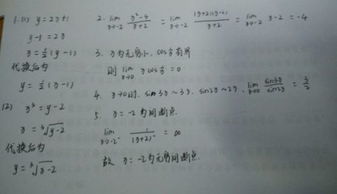 1.(1) y=2x+1
y-1=2x
x=½(y-1)
代换后为
y=½(x-1)
(2) x³=y-2
x=³√y-2
代换后为
y=³√x-2
2. lim x→-2 x²-4/x+2 = lim x→-2 (x+2)(x-2)/x+2 = lim x→-2 x-2=-4
3. x为无穷小, cos 有界
则 lim x→0 x cos =0
4. x→0时, sin3x~3x, sin2x~2x, lim x→0 sin3x/sin2x = 3/2
5. x=-2为间断点
lim x→-2 1/(x+2)² = ∞
故 x=-2为无穷间断点